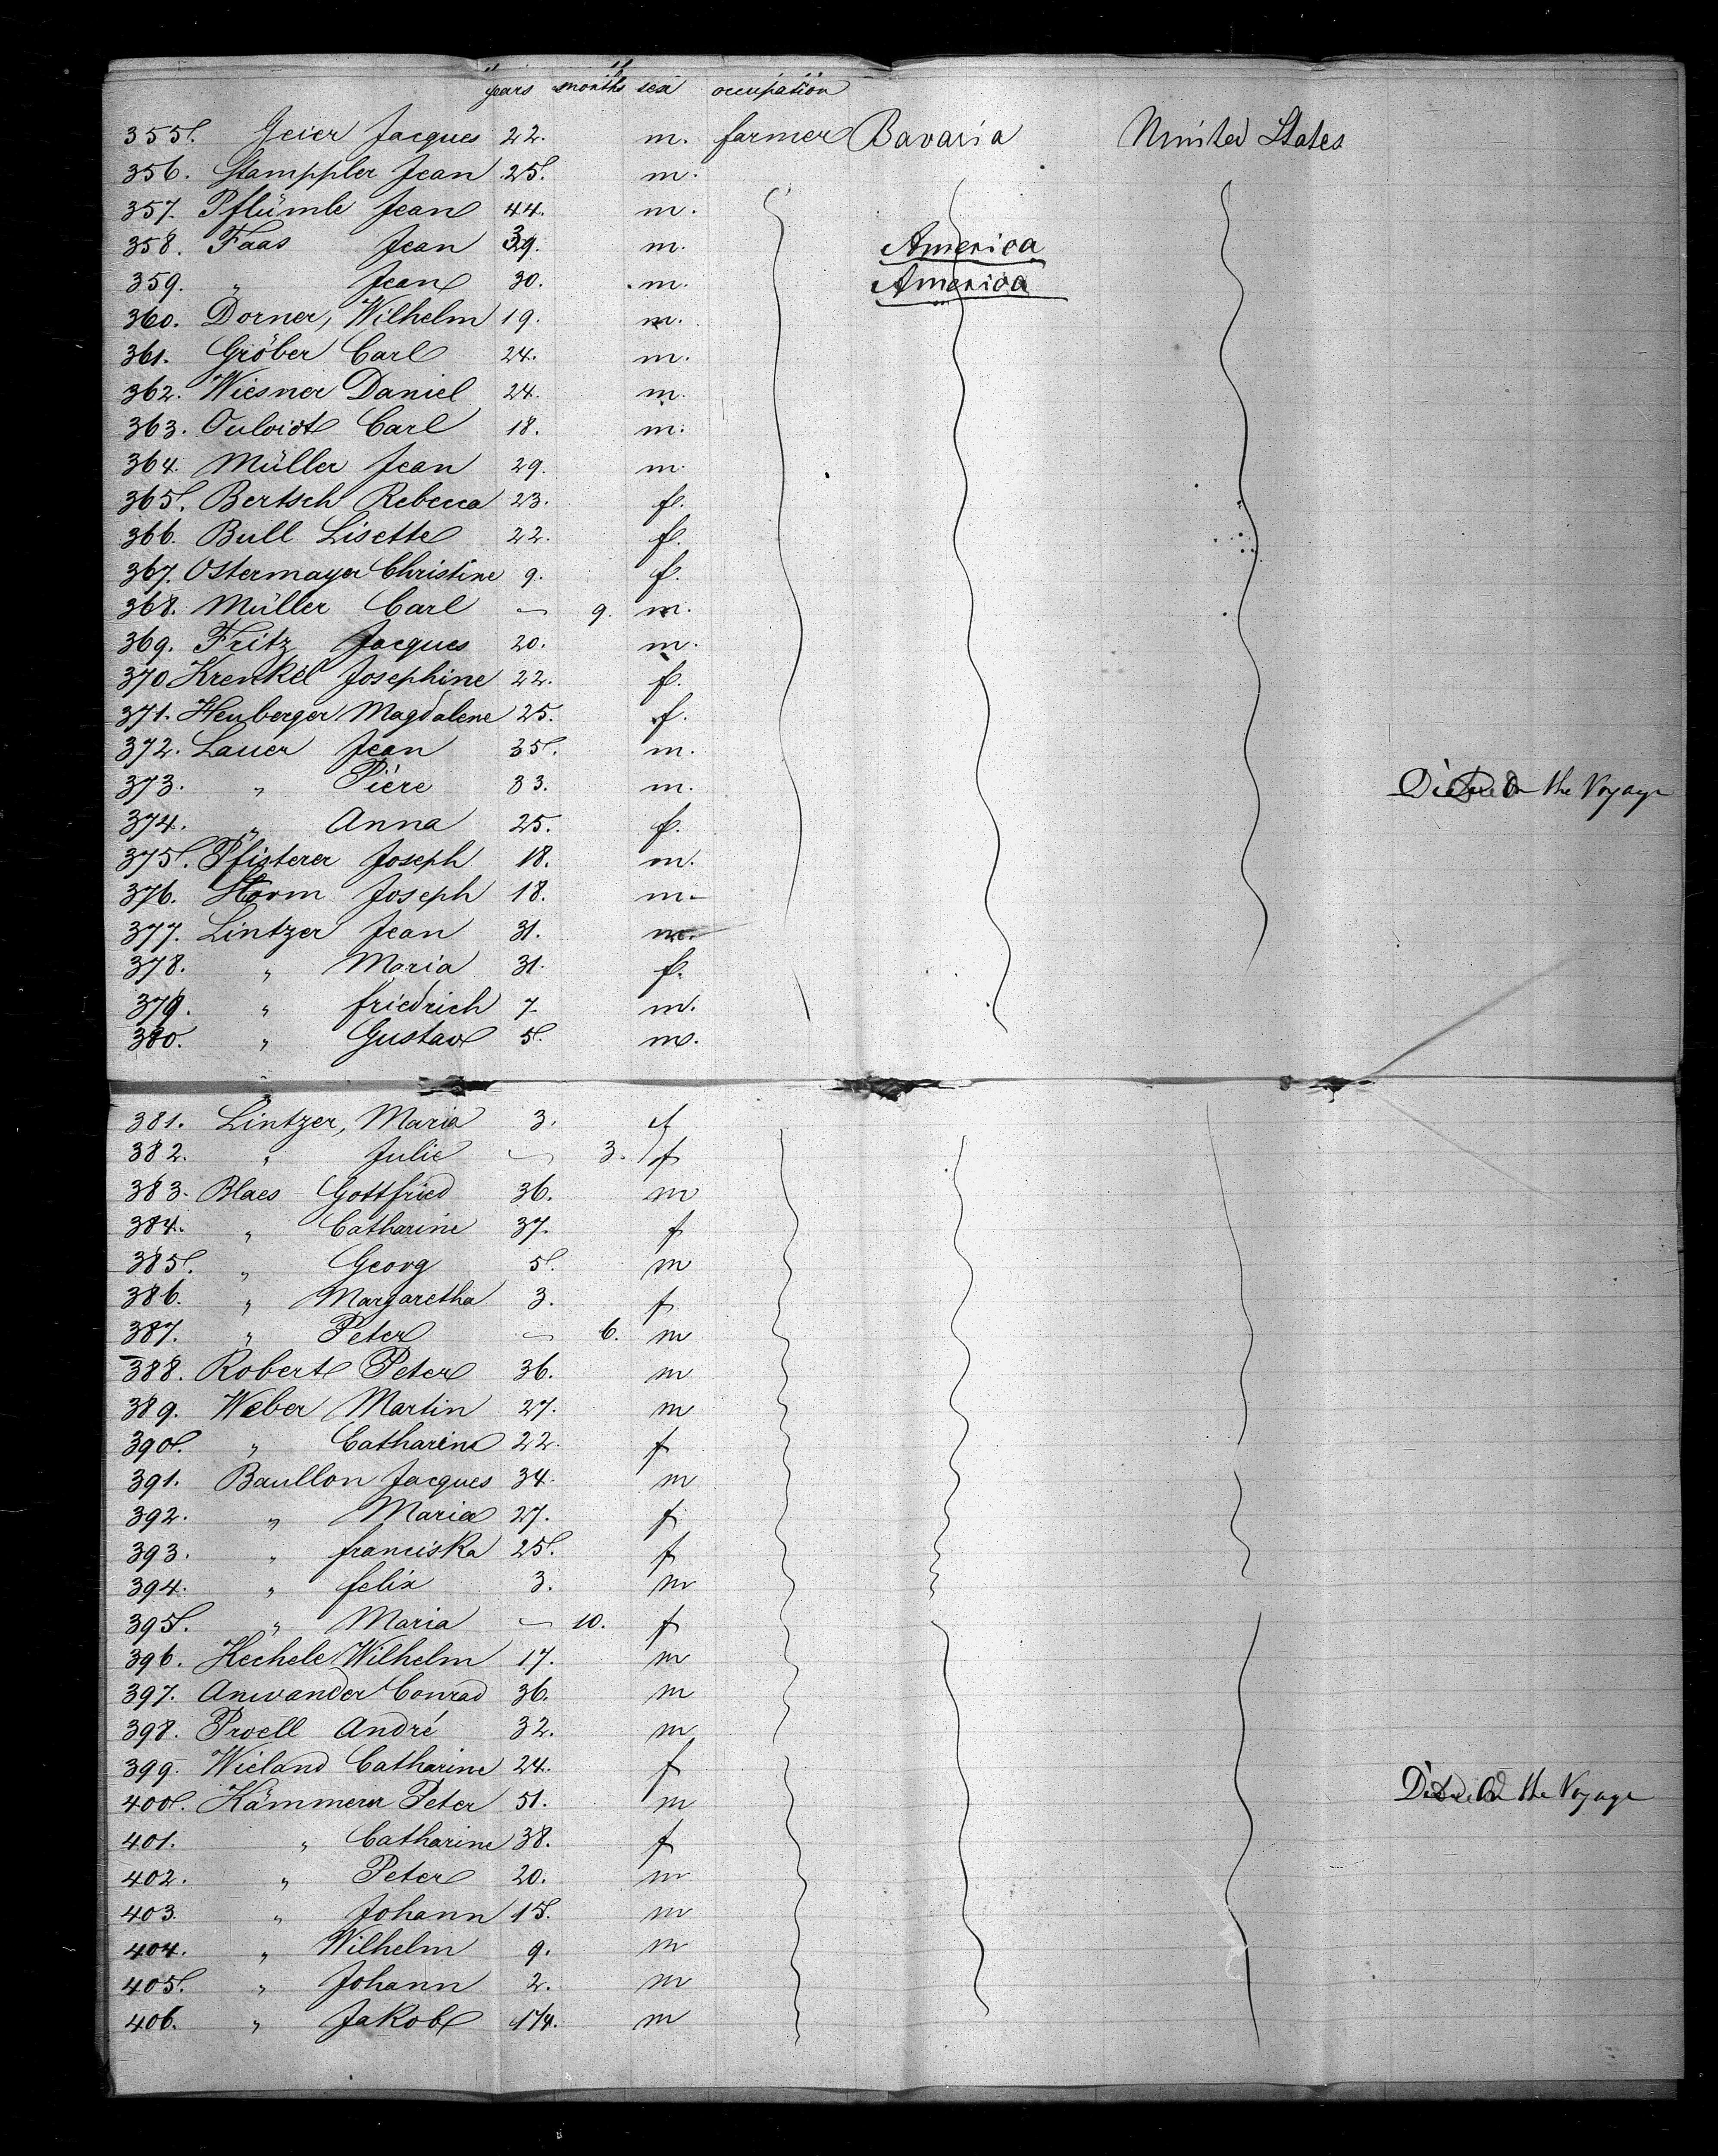 years months sex occupation
355. Geier Jacques 22. m. farmer Bavaria United States
356. Stamppler Jean 25. m.
357. Pflümle Jean 44. m.
358. Faas Jean 39. m. America
359. " Jean 30. m. America
360. Dorner, Wilhelm 19. m.
361. Gröber Carl 24. m.
362. Wiesner Daniel 24. m.
363. Carl 18. m.
364. Müller Jean 29. m.
365. Bertsch Rebecca 23. f.
366. Bull Lisette 22. f.
367. Ostermayer Christine 9. f.
368. Müller Carl — 9. m.
369. Fritz Jacques 20. m.
370 Krenkel Josephine 22. f.
371. Heuberger Magdalene 25. f.
372. Lauer Jean 35. m.
373. " Pière 33. m. Died on the Voyage
374. " Anna 25. f.
375. Pfisterer Joseph 18. m.
376. Storm Joseph 18. m.
377. Lintzer Jean 31. m.
378. " Maria 31. f.
379. " friedrich 7. m.
380. " Gustav 5. m.
381. Lintzer, Maria 3. f
382. " Julie — 3. f
383. Blaes Gottfried 36. m
384. " Catharine 37. f
385. " Georg 5. m
386. " Margaretha 3. f
387. " Peter — 6. m
388. Robert Peter 36. m
389. Weber Martin 27. m
390. " Catharine 22. f
391. Baullon Jacques 34. m
392. " Maria 27. f
393. " franciska 25. f
394. " felix 3. m
395. " Maria — 10. f
396. Hechele Wilhelm 17. m
397. Anwander Conrad 36. m
398. Proell André 32. m
399. Wieland Catharine 24. f
400. Kämmerer Peter 51. m Died on the Voyage
401. " Catharine 38. f
402. " Peter 20. m
403. " Johann 15. m
404. " Wilhelm 9. m
405. " Johann 2. m
406. " Jakob 1/4. m